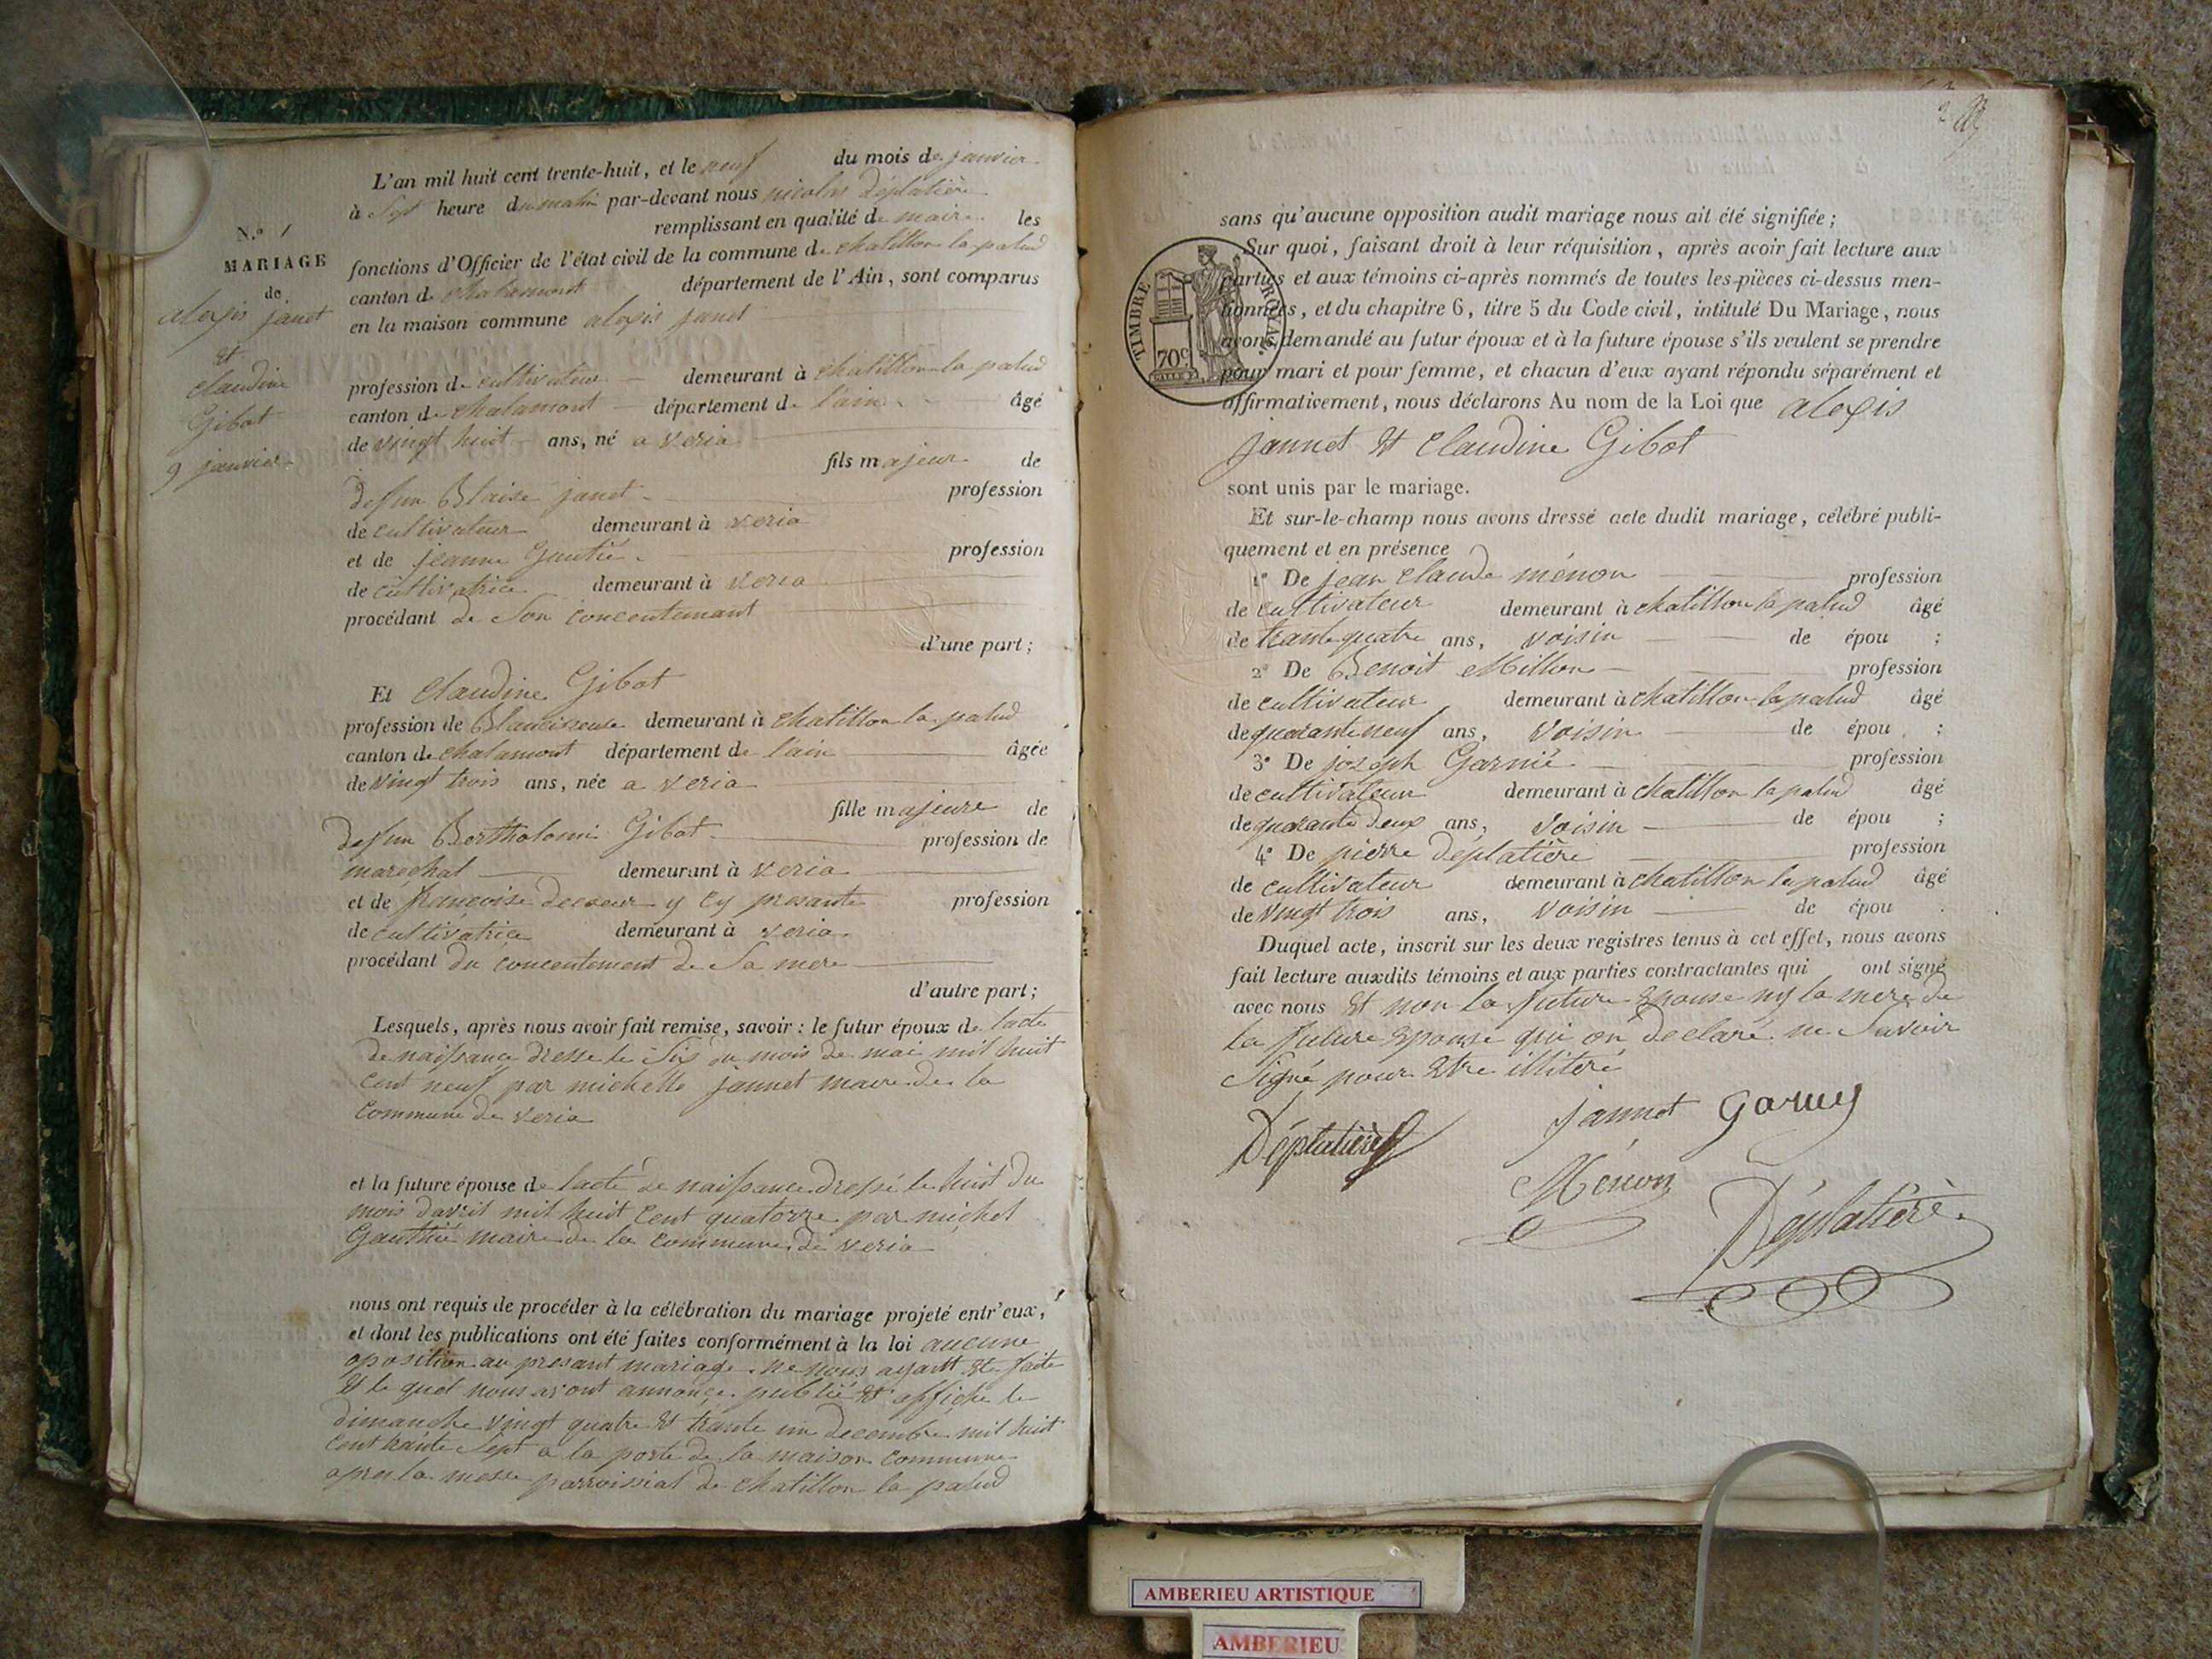 L'an mil huit cent trente-huit, et le neuf du mois de janvier
à Sept heure du matin par-devant nous nicolas Déplatière
remplissant en qualité de maire les
fonctions d'Officier de l'état civil de la commune de chatillon la palud
canton de chalamont département de l'Ain, sont comparus
en la maison commune alexis janet
N.º 1
MARIAGE
de
alexis janet
et
claudine
Gibot
9 janvier
profession de cultivateur demeurant à chatillon la palud
canton de chalamont département de l'ain âgé
de vingt huit ans, né a veria
fils majeur de
defun Blaise janet profession
de cultivateur demeurant à veria
et de jeanne Gautié profession
de cultivatrice demeurant à veria
procédant de Son concentemant
d'une part;
Et claudine Gibot
profession de Blancisseuse demeurant à chatillon la palud
canton de chalamont département de l'ain âgée
de vingt trois ans, née a veria
fille majeure de
defun Bertholomi Gibot profession de
marechal demeurant à veria
et de francoise y cy presante profession
de cultivatrice demeurant à veria
procédant du concentement de Sa mere
d'autre part;
Lesquels, après nous avoir fait remise, savoir: le futur époux de lacte
de naissance dresse le Six du mois de mai mil huit
cent neuf par michelle jannet maire de la
commune de veria
et la future épouse de lacte de naissance dressé le huit du
mois davril mil huit cent quatorze par michel
Gauthié maire de la commune de veria
nous ont requis de procéder à la célébration du mariage projeté entr'eux,
et dont les publications ont été faites conformément à la loi aucune
oposition au presant mariage ne nous ayant ete faite
et le quel nous avont annonçe publié et affiche le
dimanche vingt quatre et trante un decembre mil huit
cent trante Sept a la porte de la maison commune
apres la messe parroissial de chatillon la palud
2
sans qu'aucune opposition audit mariage nous ait été signifiée;
Sur quoi, faisant droit à leur réquisition, après avoir fait lecture aux
parties et aux témoins ci-après nommés de toutes les pièces ci-dessus men-
tionnées, et du chapitre 6, titre 5 du Code civil, intitulé Du Mariage, nous
avons demandé au futur époux et à la future épouse s'ils veulent se prendre
pour mari et pour femme, et chacun d'eux ayant répondu séparément et
affirmativement, nous déclarons Au nom de la Loi que alexis
jannet et claudine Gibot
TIMBRE ROYAL.
70c
sont unis par le mariage.
Et sur-le-champ nous avons dressé acte dudit mariage, célébré publi-
quement et en présence
1º De jean claude ménon profession
de cultivateur demeurant à chatillon la palud âgé
de trante quatre ans, voisin de épou ;
2º De Benoit Millon profession
de cultivateur demeurant à chatillon la palud âgé
de quarante neuf ans, voisin de épou ;
3º De joseph Garnié profession
de cultivateur demeurant à chatillon la palud âgé
de quarante deux ans, voisin de épou ;
4º De pierre déplatière profession
de cultivateur demeurant à chatillon la palud âgé
de vingt trois ans, voisin de épou .
Duquel acte, inscrit sur les deux registres tenus à cet effet, nous avons
fait lecture auxdits témoins et aux parties contractantes qui ont signé
avec nous et non la future epouse ny la mere de
la future epouse qui on declaré ne Savoir
Signé pour etre illitéré
jannet Garny
Déplatière
Ménon
Déplatière
AMBERIEU ARTISTIQUE
AMBERIEU